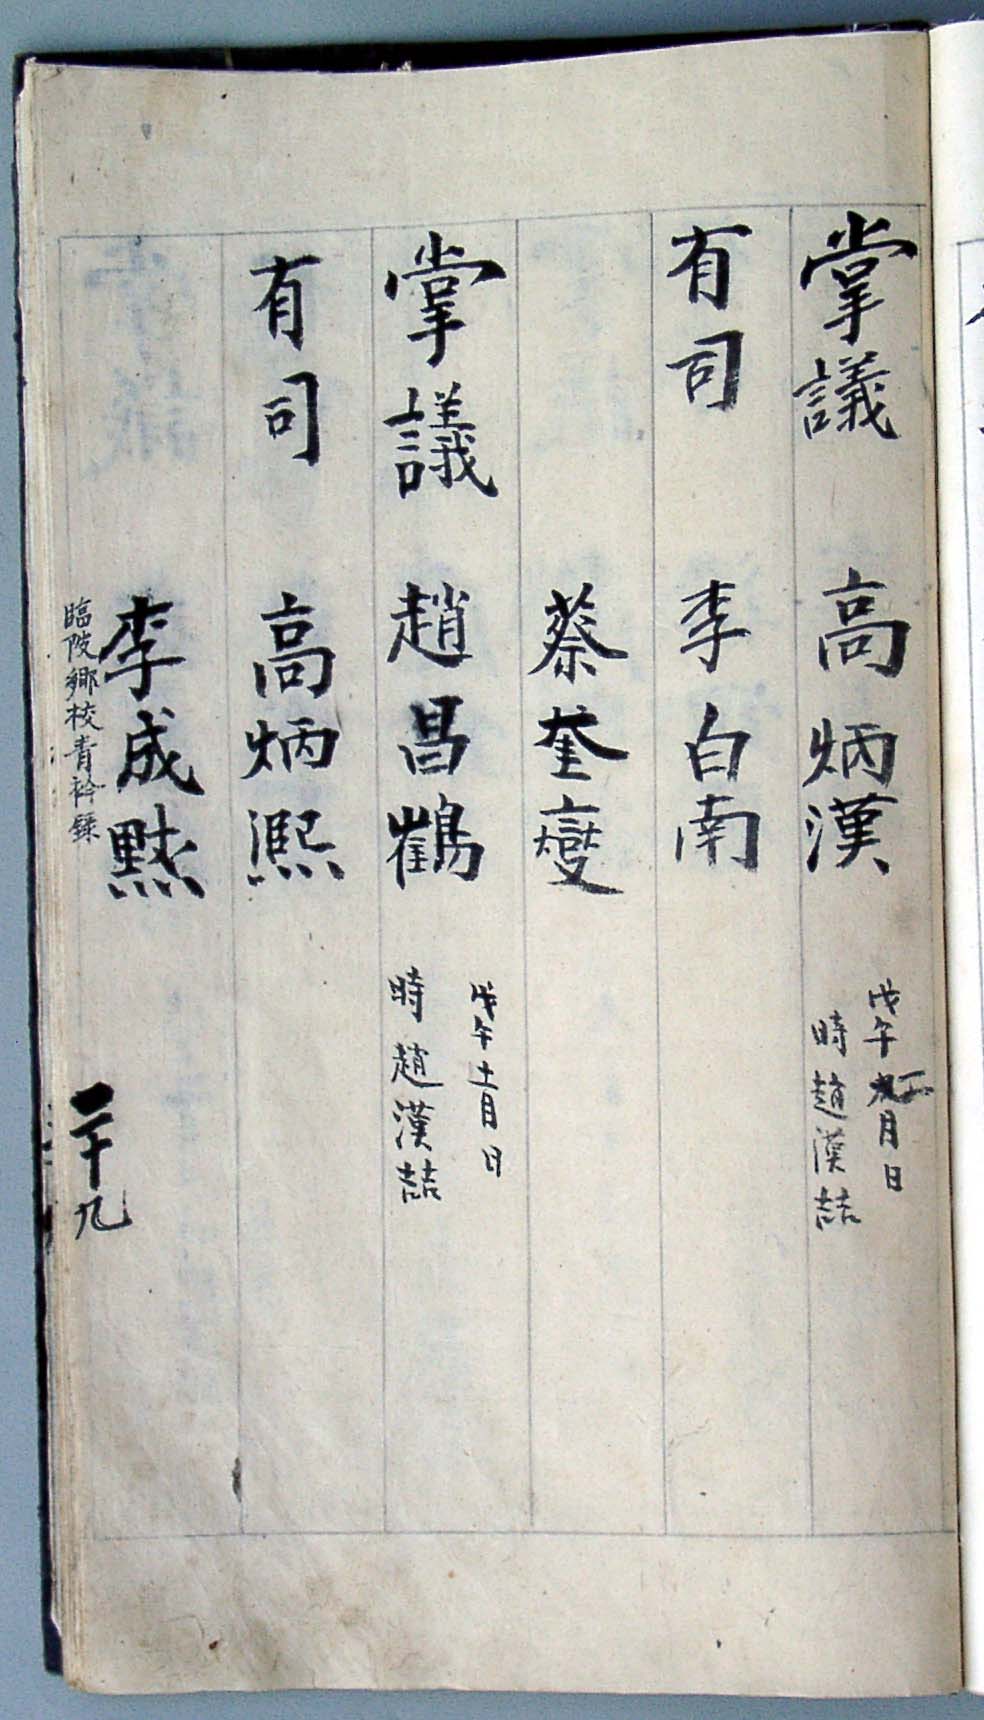 掌議 高炳漢
戊午 月 日
時 趙漢喆
有司 李白南
蔡奎燮
掌議 趙昌鶴
戊午十一月 日
時 趙漢喆
有司 高炳熙
李成黙
臨陂鄕校靑衿錄
二十九